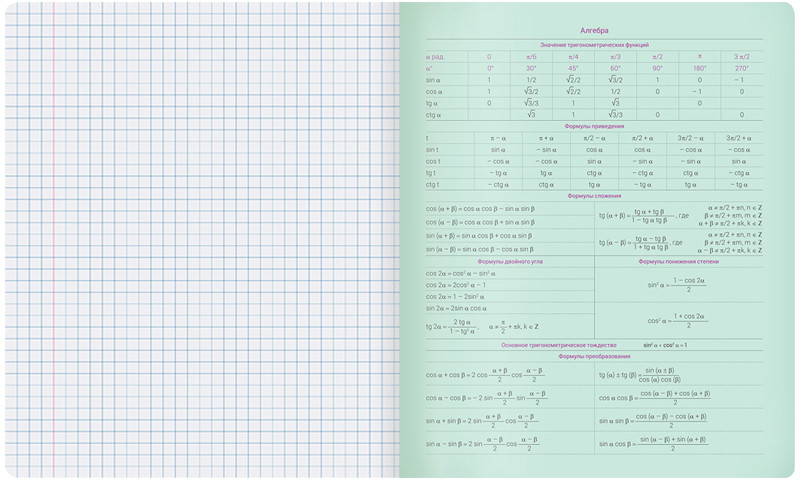 Алгебра
Значение тригонометрических функций
α рад. 0 π/6 π/4 π/3 π/2 π 3 π/2
α° 0° 30° 45° 60° 90° 180° 270°
sin α 1 1/2 √2/2 √3/2 1 0 − 1
cos α 1 √3/2 √2/2 1/2 0 − 1 0
tg α 0 √3/3 1 √3 0
ctg α √3 1 √3/3 0 0
Формулы приведения
t π − α π + α π/2 − α π/2 + α 3π/2 − α 3π/2 + α
sin t sin α − sin α cos α cos α − cos α − cos α
cos t − cos α − cos α sin α − sin α − sin α sin α
tg t − tg α tg α ctg α − ctg α ctg α − ctg α
ctg t − ctg α ctg α tg α − tg α tg α − tg α
Формулы сложения
cos (α + β) = cos α cos β − sin α sin β
cos (α − β) = cos α cos β + sin α sin β
sin (α + β) = sin α cos β + cos α sin β
sin (α − β) = sin α cos β − cos α sin β
tg (α + β) = (tg α + tg β)/(1 − tg α tg β), где
α ≠ π/2 + πn, n ∈ Z
β ≠ π/2 + πm, m ∈ Z
α + β ≠ π/2 + πk, k ∈ Z
tg (α − β) = (tg α − tg β)/(1 + tg α tg β), где
α ≠ π/2 + πn, n ∈ Z
β ≠ π/2 + πm, m ∈ Z
α − β ≠ π/2 + πk, k ∈ Z
Формулы двойного угла
cos 2α = cos² α − sin² α
cos 2α = 2cos² α − 1
cos 2α = 1 − 2sin² α
sin 2α = 2sin α cos α
tg 2α = 2 tg α/(1 − tg² α), α ≠ π/2 + πk, k ∈ Z
Формулы понижения степени
sin² α = (1 − cos 2α)/2
cos² α = (1 + cos 2α)/2
Основное тригонометрическое тождество sin² α + cos² α = 1
Формулы преобразования
cos α + cos β = 2 cos (α + β)/2 cos (α − β)/2
cos α − cos β = − 2 sin (α + β)/2 sin (α − β)/2
sin α + sin β = 2 sin (α + β)/2 cos (α − β)/2
sin α − sin β = 2 sin (α − β)/2 cos (α − β)/2
tg (α) ± tg (β) = sin (α ± β)/(cos (α) cos (β))
cos α cos β = (cos (α − β) + cos (α + β))/2
sin α sin β = (cos (α − β) − cos (α + β))/2
sin α cos β = (sin (α − β) + sin (α + β))/2